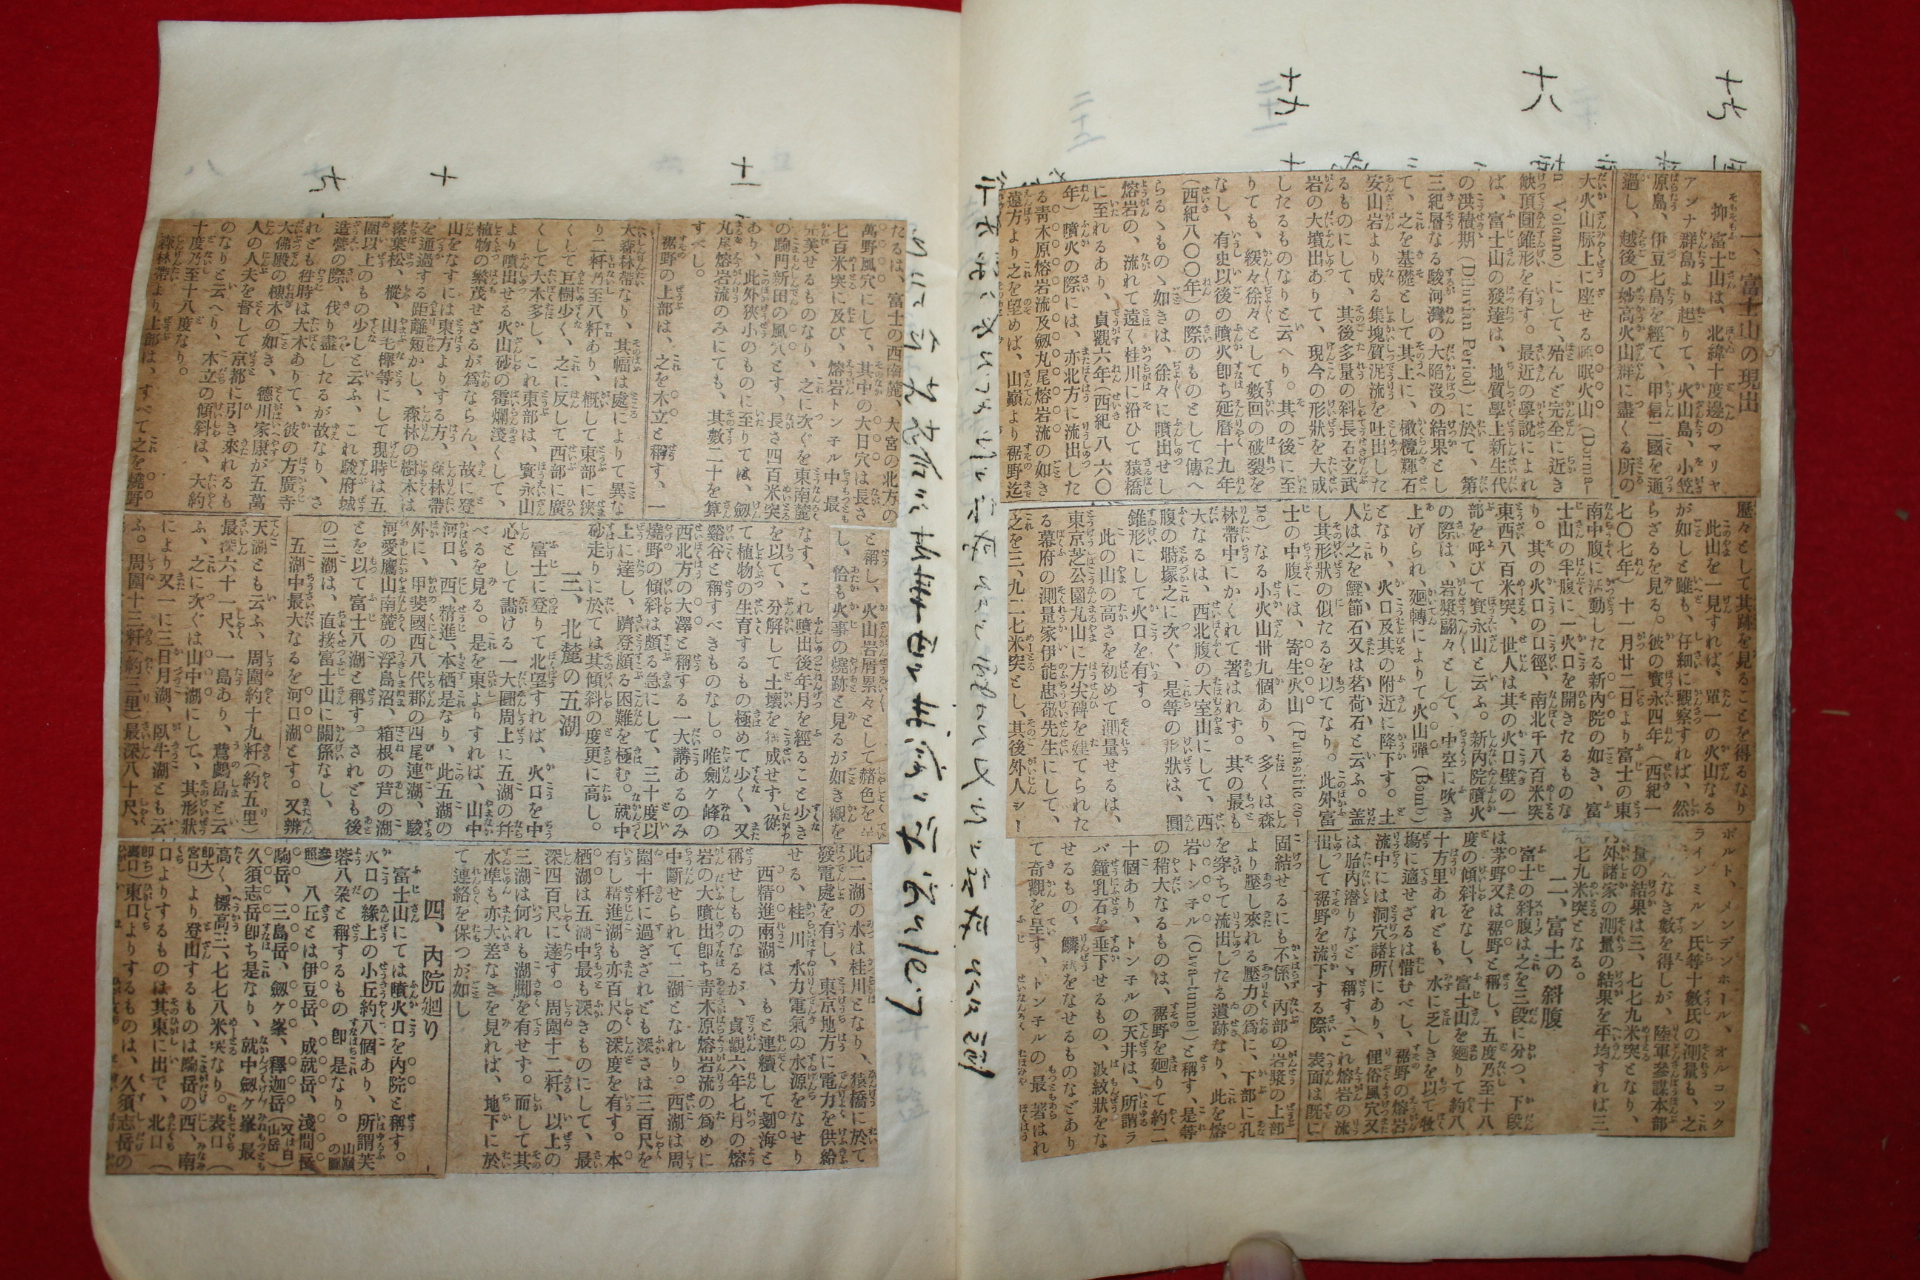 十九
十八
十七
一、富士山の現出
抑〻富士山は、北緯十度邊のマリヤ
アンナ群島より起りて、火山島、小笠
原島、伊豆七島を經て、甲信二國を通
過し、越後の妙高火山群に盡くる所の
大火山脈上に座せる休眠火山(Dorma-
n Volcano)にして、殆んど完全に近き
缺頂圓錐形を有す。最近の學説によれ
ば、富士山の發達は、地質學上新生代
の洪積期(Diluvian Period)に於て、第
三紀層なる駿河灣の大陷沒の結果とし
て、之を基礎として其上に、橄欖輝石
安山岩より成る集塊質泥流を吐出した
るものにして、其後多量の斜長石玄武
岩の大墳出ありて、現今の形狀を大成
したるものなりと云へり。其の後に至
りても、緩々徐々として數回の破裂を
なし、有史以後の噴火卽ち延曆十九年
(西紀八〇〇年)の際のものとして傳へ
らるゝものゝ如きは、徐々に噴出せし
熔岩の、流れて遠く桂川に沿ひて猿橋
に至れるあり、貞觀六年(西紀八六〇
年)噴火の際には、亦北方に流出した
る靑木原熔岩流及劔丸尾熔岩流の如き
遠方より之を望めば、山巓より裾野迄
歷々として其跡を見ることを得るなり
此山を一見すれば、單一の火山なる
が如しと雖も、仔細に觀察すれば、然
らざるを見る。彼の寳永四年(西紀一
七〇七年)十一月廿二日より富士の東
南中腹に活動したる新内院の如き、富
士山の半腹に一火口を開きたるものな
り。其の火口の口徑、南北千八百米突
東西八百米突、世人は其の火口壁の一
部を呼びて寳永山と云ふ。新内院噴火
の際は、岩漿飜々として、中空に吹き
上げられ、廻轉によりて火山彈(Bomb)
となり、火口及其の附近に降下す。土
人は之を鰹節石又は茗荷石と云ふ。蓋
し其形狀の似たるを以てなり。此外富
士の中腹には、寄生火山(Parasitic co-
ne)なる小火山卅九個あり、多くは森
林帶中にかくれて著はれす。其の最も
大なるは、西北腹の大室山にして、西
腹の塒塚之に次ぐ、是等の形狀は、圓
錐形にして火口を有す。
此の山の高さを初めて測量せるは、
東京芝公園丸山に方尖碑を建てられた
る幕府の測量家伊能忠敬先生にして、
之を二、九二七米突とし、其後外人シー
ボルト、メンデンホール、オルコック
ラインミルン氏等十數氏の測量も、之
乃外諸家の測量の結果を平均すれば三
七七九米突となる。
二、富士の斜腹
富士の斜腹は之を三段に分つ、下段
は茅野又は裾野と稱し、五度乃至十八
度の傾斜をなし、富士山を廻りて約八
十方里あれども、水に乏しきを以て牧
塲に適せざるは惜むべし、裾野の熔岩
流中には洞穴諸所にあり、俚俗風穴又
は胎内潜りなどゝ稱す、これ熔岩の流
出して裾野を流下する際、表面は既に
固結せるにも不係、内部の岩漿の上部
より壓し來れる壓力の爲に、下部に孔
を穿ちて流出したる遺跡なり、此を熔
岩トンネル(Lava-tunnel)と稱す、是等
の稍大なるものは、裾野を廻りて約二
十個あり、トンネルの天井は、所謂ラ
バ鐘乳石を垂下せるもの、波紋狀をな
せるもの、鱗狀をなせるものなどあり
て奇觀を呈す、トンネルの最著はれ
十一
十
九
たるは、富士の西南麓、大宮の北方の
萬野風穴にして、其中の大日穴は長さ
七百米突に及び、熔岩トンネル中、最
完美せるものなり、之に次ぐを東南麓
の駒門新田の風穴とす、長さ四百米突
あり、此外狹小のものに至りては、劔
丸尾熔岩流のみにても、其數二十を算
すべし。
裾野の上部は、之を木立と稱す、一
大森林帶なり、其幅は處によりて異な
り二粁乃至八粁あり、慨して東部に狹
くして巨樹少く、之に反して西部に廣
くして大木多し、これ東部は、寳永山
より噴出せる火山砂の霉爛淺くして、
植物の繁茂せざるが爲ならん、故に登
山をなすには東方よりする方、森林帶
を通過する距離短かし、森林の樹木は
落葉松、樅、山毛欅等にして現時は五
圍以上のもの少しと云ふ、これ駿府城
造營の際、伐り盡したるが故なり、さ
れども往時は大木ありて、彼の方廣寺
大佛殿の棟木の如き、德川家康が五萬
人の人夫を督して京都に引き來れるも
のなりと云へり、木立の傾斜は、大約
十度乃至十八度なり。
森林帶より上部は、すべて之を燒野
と稱し、火山岩屑累々として赭色を呈
し、恰も火事の燒跡を見るが如き觀を
なす、これ噴出後年月を經ること少き
を以て、分解して土壞を構成せす、從
て植物の生育するもの極めて少く、又
谿谷と稱すべきものなし。唯劍ヶ峰の
西北方の大澤と稱する一大溝あるのみ
燒野の傾斜は頗る急にして、三十度以
上に達し、躋登頗る困難を極む。就中
砂走りに於ては其傾斜の度更に高し。
三、北麓の五湖
富士に登りて北望すれば、火口を中
心として畵ける一大圈周上に五湖の幷
べるを見る。是を東よりすれば、山中
河口、西、精進、本栖是なり、此五湖の
外に、甲斐國西八代郡の四尾連湖、駿
河愛鷹山南麓の浮島沼、箱根の芦の湖
とを以て富士八湖と稱す。されども後
の三湖は、直接富士山に關係なし、
五湖中最大なるを河口湖とす。又辨
天湖とも云ふ、周圍約十九粁(約五里)
最深六十一尺、一島あり、鸕鷀島と云
ふ、之に次ぐは山中湖にして、其形狀
により又一に三日月湖、臥牛湖とも云
ふ。周圍十三粁(約三里)最深八十尺、
此二湖の水は桂川となり、猿橋に於て
發電處を有し、東京地方に電力を供給
せる、桂川水力電氣の水源をなせり
西精進兩湖は、もと連續して剗海と
稱せしものなるが、貞觀六年七月の熔
岩の大噴出卽ち靑木原熔岩流の爲めに
中斷せられて二湖となれり。西湖は周
圍十粁に過ぎざれども深さは三百尺を
有し精進湖も亦百尺の深度を有す。本
栖湖は五湖中最も深きものにして、最
深四百尺に達す。周圍十二粁、以上の
三湖は何れも湖脚を有せす。而して其
水準も亦大差なきを見れば、地下に於
て連絡を保つが如し
四、内院廻り
富士山にては噴火口を内院と稱す。
火口の緣上の小丘約八個あり、所謂芙
蓉八朶と稱するもの卽是なり。(山巓の圖
參照)八丘とは伊豆岳、成就岳、淺間岳
駒岳、三島岳、劔ヶ峯、釋迦岳(又は白山岳)
久須志岳卽ち是なり、就中劔ヶ峯最
高く、標高三、七七八米突なり。表口(
卽大宮口)より登山するものは駒岳の西、南
口よりするものは其東に出で、北口(
卽ち裏口)東口よりするものは、久須志岳の